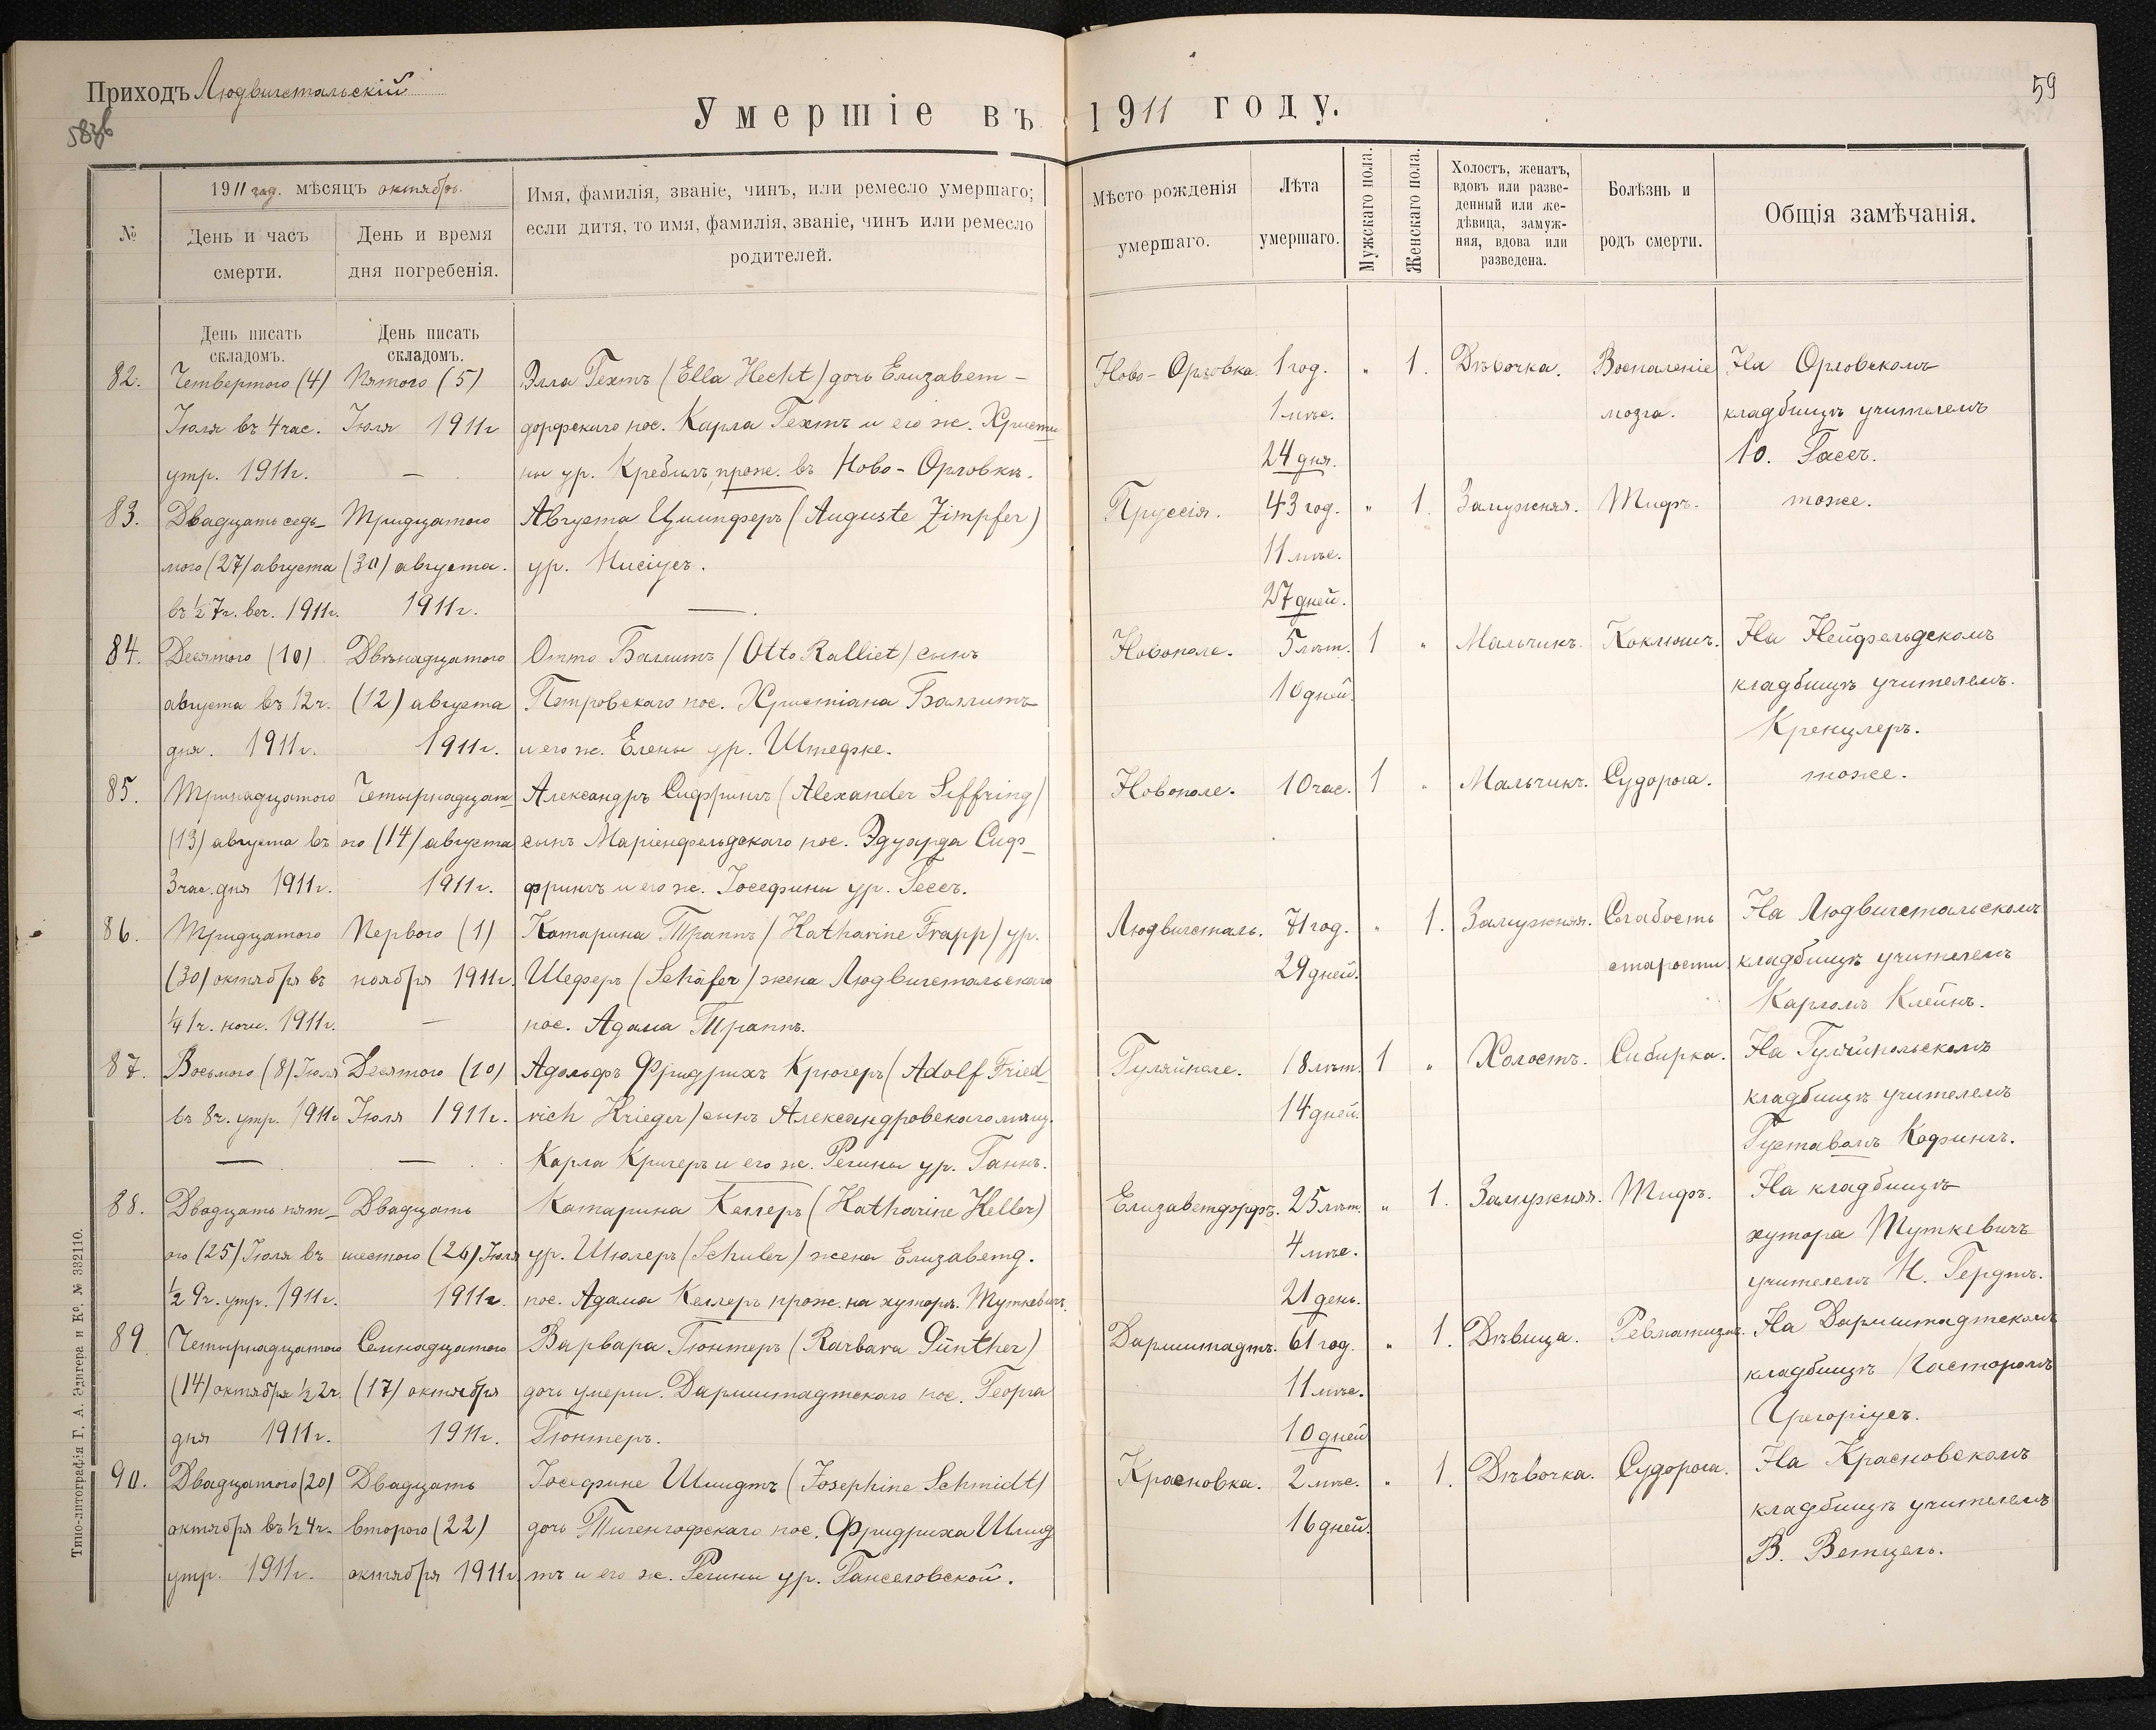 Приходъ Людвигстальскій
58об
59
Умершіе въ 1911 году.
№
1911 год. мѣсяцъ октябрь.
День и часъ смерти.
День и время дня погребенія.
Имя, фамилія, званіе, чинъ, или ремесло умершаго;
если дитя, то имя, фамилія, званіе, чинъ или ремесло
родителей.
Мѣсто рожденія
умершаго.
Лѣта
умершаго.
Мужскаго пола.
Женскаго пола.
Холостъ, женатъ,
вдовъ или разве-
денный или же-
дѣвица, замуж-
няя, вдова или
разведена.
Болѣзнь и
родъ смерти.
Общія замѣчанія.
День писать
складомъ.
День писать
складомъ.
82. Четвертого (4) Пятого (5) Элла Гехтъ (Ella Hecht) дочь Елизавет- Ново-Орловка. 1 год. „ 1. Дѣвочка. Воспаленіе На Орловскомъ
Іюля въ 4 час. Іюля 1911г дорфскаго пос. Карла Гехтъ и его ж. Христи 1 мѣс. мозга. кладбищѣ учителемъ
утр. 1911г. — ны ур. Кребиль, прож. въ Ново-Орловкѣ. 24 дня. Ю. Гассъ.
83. Двадцать седь- Тридцатого Августа Цимпферъ (Auguste Zimpfer) Пруссія. 43 год. „ 1. Замужняя. Тифъ. тоже.
мого (27) августа (30) августа. ур. Нисіусъ. 11 мѣс.
въ ½ 7ч. веч. 1911г. 1911г. — 27 дней.
84. Десятого (10) Двѣнадцатого Отто Баллитъ (Otto Balliet) сынъ Новополе. 5 лѣт. 1 „ Мальчикъ. Коклюшъ. На Нейфельдскомъ
августа въ 12ч. (12) августа Петровскаго пос. Христіана Баллитъ 10 дней. кладбищѣ учителемъ.
дня. 1911г. 1911г. и его ж. Елены ур. Штедке. Кренцлеръ.
85. Тринадцатого Четырнадцат- Александръ Сиффрингъ (Alexander Siffring) Новополе. 10 час. 1 „ Мальчикъ. Судорога. тоже.
(13) августа въ ого (14) августа сынъ Маріенфельдскаго пос. Эдуарда Сиф-
3 час. дня 1911г. 1911г. фрингъ и его ж. Іосефины ур. Гессъ.
86. Тридцатого Перваго (1) Катарина Траппъ (Katharine Trapp) ур. Людвигсталь. 71 год. „ 1. Замужняя. Слабость На Людвигстальскомъ
(30) октября въ ноября 1911г. Шеферъ (Schäfer) жена Людвигстальскаго 29 дней. старости. кладбищѣ учителемъ
¼ 1ч. ночи. 1911г. — пос. Адама Траппъ. Карломъ Клейнъ.
87. Восьмого (8) Іюля Десятого (10) Адольфъ Фридрихъ Крюгеръ (Adolf Fried- Гуляйполе. 18 лѣт. 1 „ Холостъ. Сибирка. На Гуляйпольскомъ
въ 8ч. утр. 1911г Іюля 1911г. rich Krieger) сынъ Александровскаго мѣщ. 14 дней. кладбищѣ учителемъ
— — Карла Кригеръ и его ж. Регины ур. Ганнъ. Густавомъ Кофингъ.
88. Двадцать пят- Двадцать Катарина Келлеръ (Katharine Keller) Елизаветдорфъ. 25 лѣт. „ 1. Замужняя. Тифъ. На кладбищѣ
ого (25) Іюля въ шестого (26) Іюля ур. Шюлеръ (Schuler) жена Елизаветд. 4 мѣс. хутора Туткевичъ
½ 9ч. утр. 1911г. 1911г. пос. Адама Келлеръ прож. на хуторѣ. Туткевичъ. 21 день. учителемъ И. Гердтъ.
89. Четырнадцатого Семнадцатого Варвара Гюнтеръ (Barbara Günther) Дармштадтъ. 61 год. „ 1. Дѣвица. Ревматизмъ. На Дармштадтскомъ
(14) октября ½ 2ч. (17) октября дочь умерш. Дармштадтскаго пос. Георга 11 мѣс. кладбищѣ Пасторомъ
дня 1911г. 1911г. Гюнтеръ. 10 дней Грегоріусъ.
90. Двадцатого (20) Двадцать Іосефине Шмидтъ (Josephine Schmidt) Красновка. 2 мѣс. „ 1. Дѣвочка. Судорога. На Красновскомъ
октября въ ½ 4ч. второго (22) дочь Тигенгофскаго пос. Фридриха Шмид 16 дней. кладбищѣ учителемъ
утр. 1911г. октября 1911г тъ и его ж. Регины ур. Гансеговской. В. Ветцель.
Типо-литографія Г. А. Эдигера и Ко. № 332110.